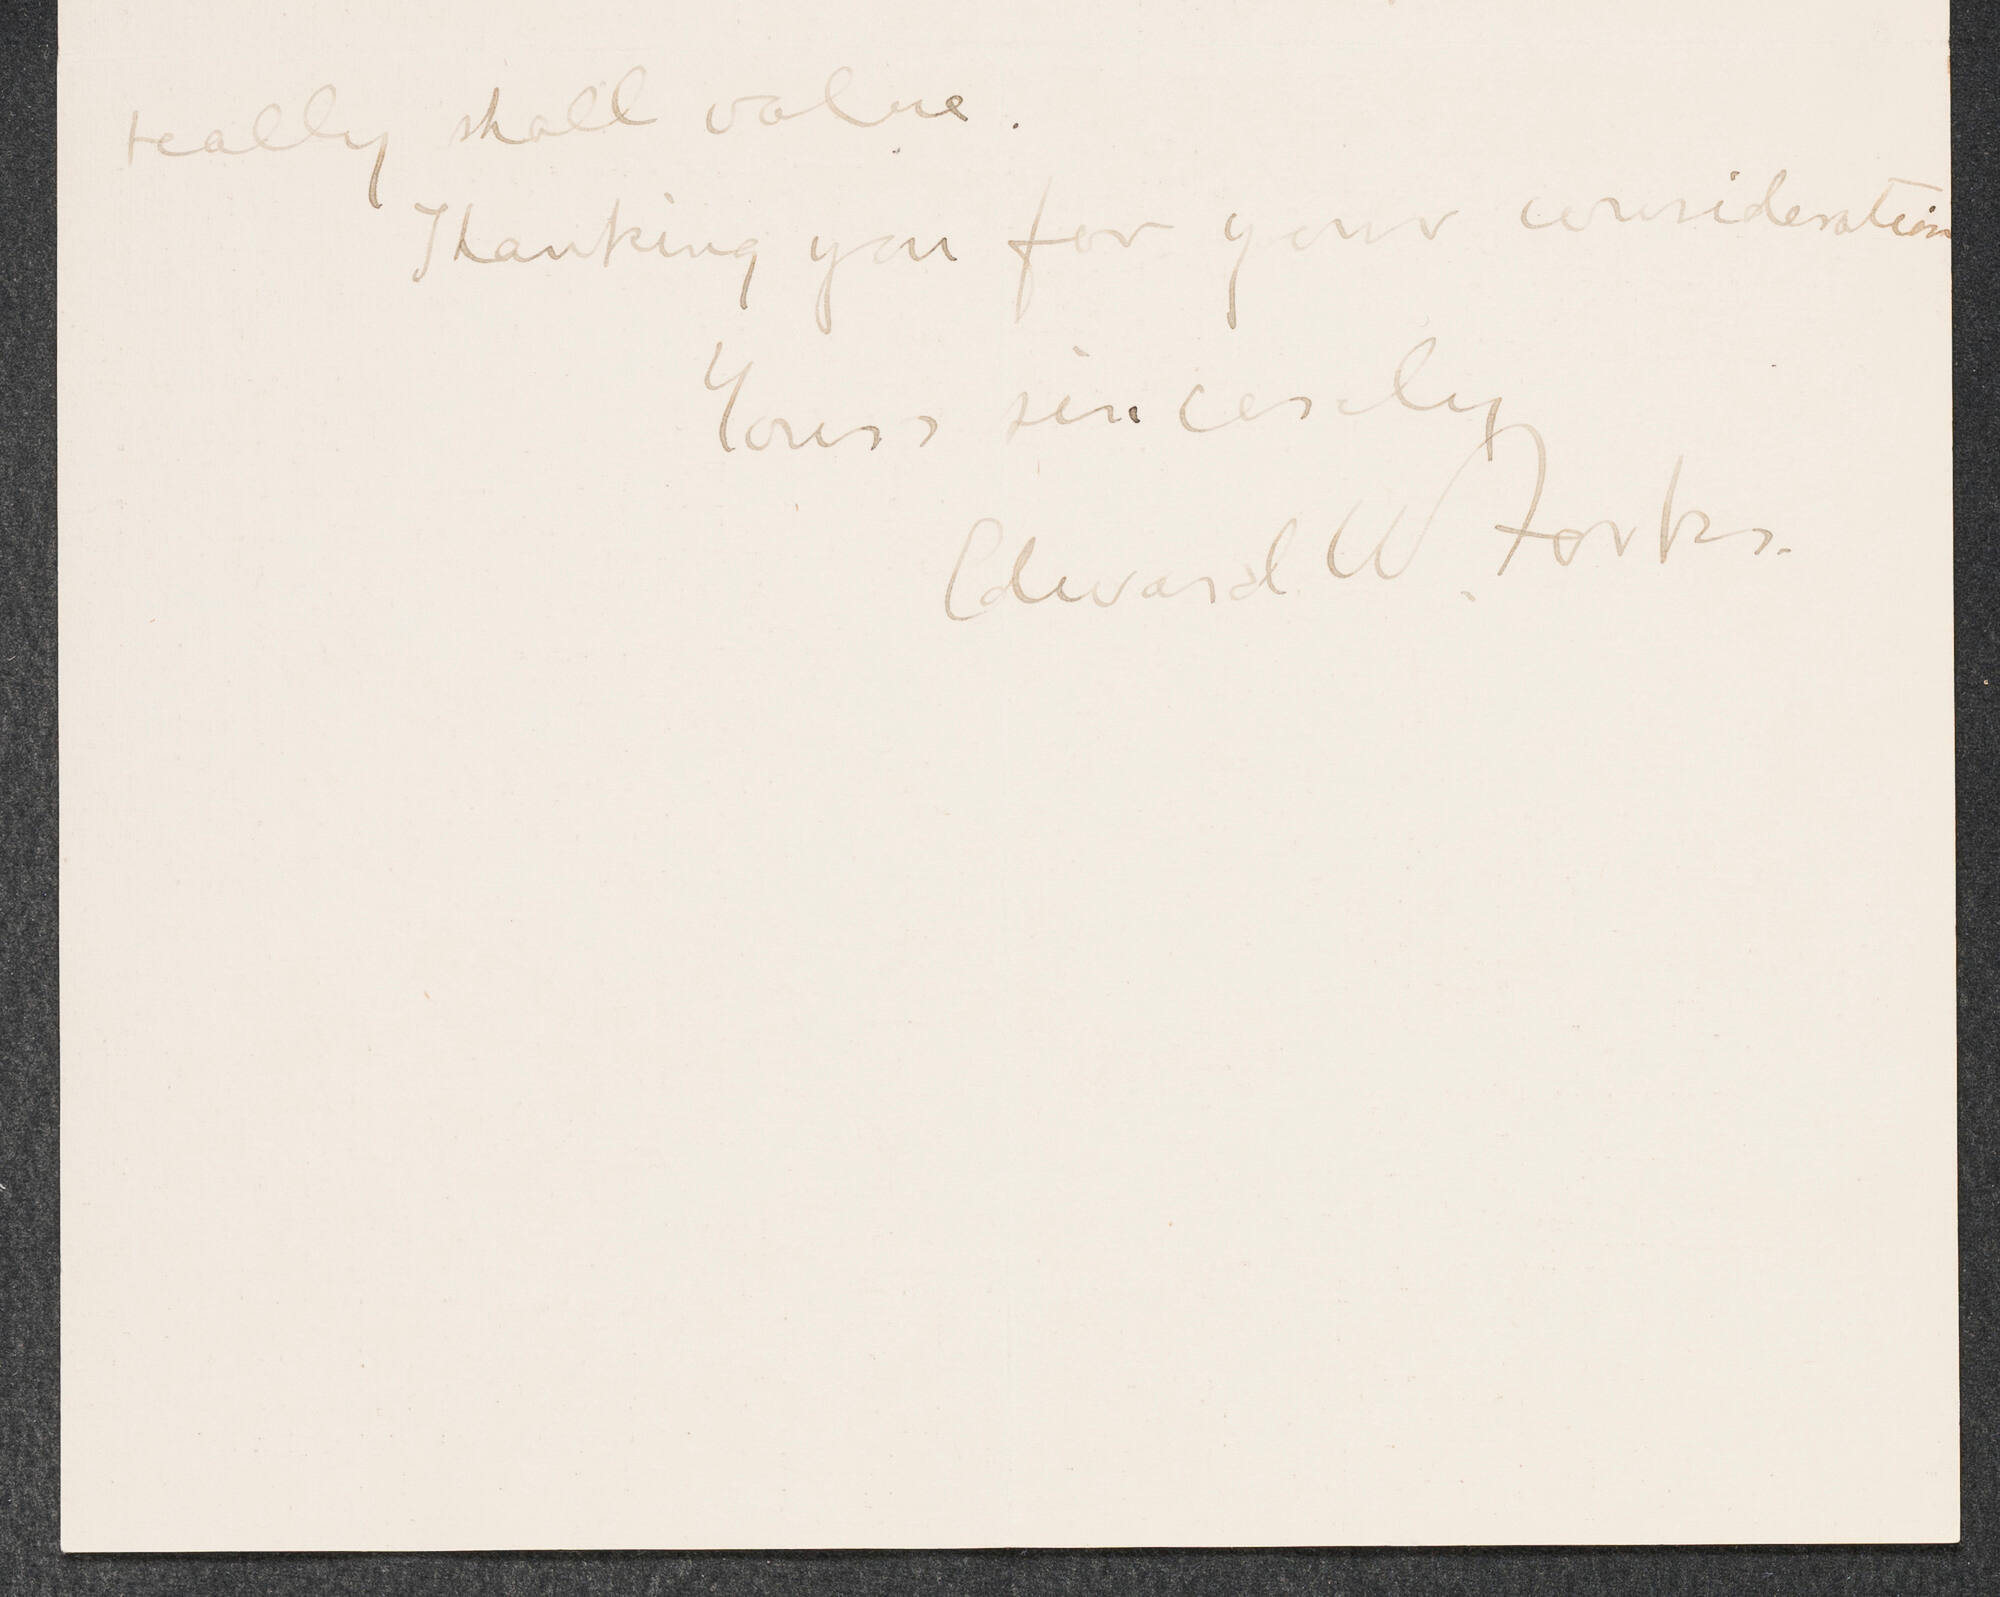 really shall value.
Thanking you for your consideration
Yours sincerely
Edward W. Forbes.